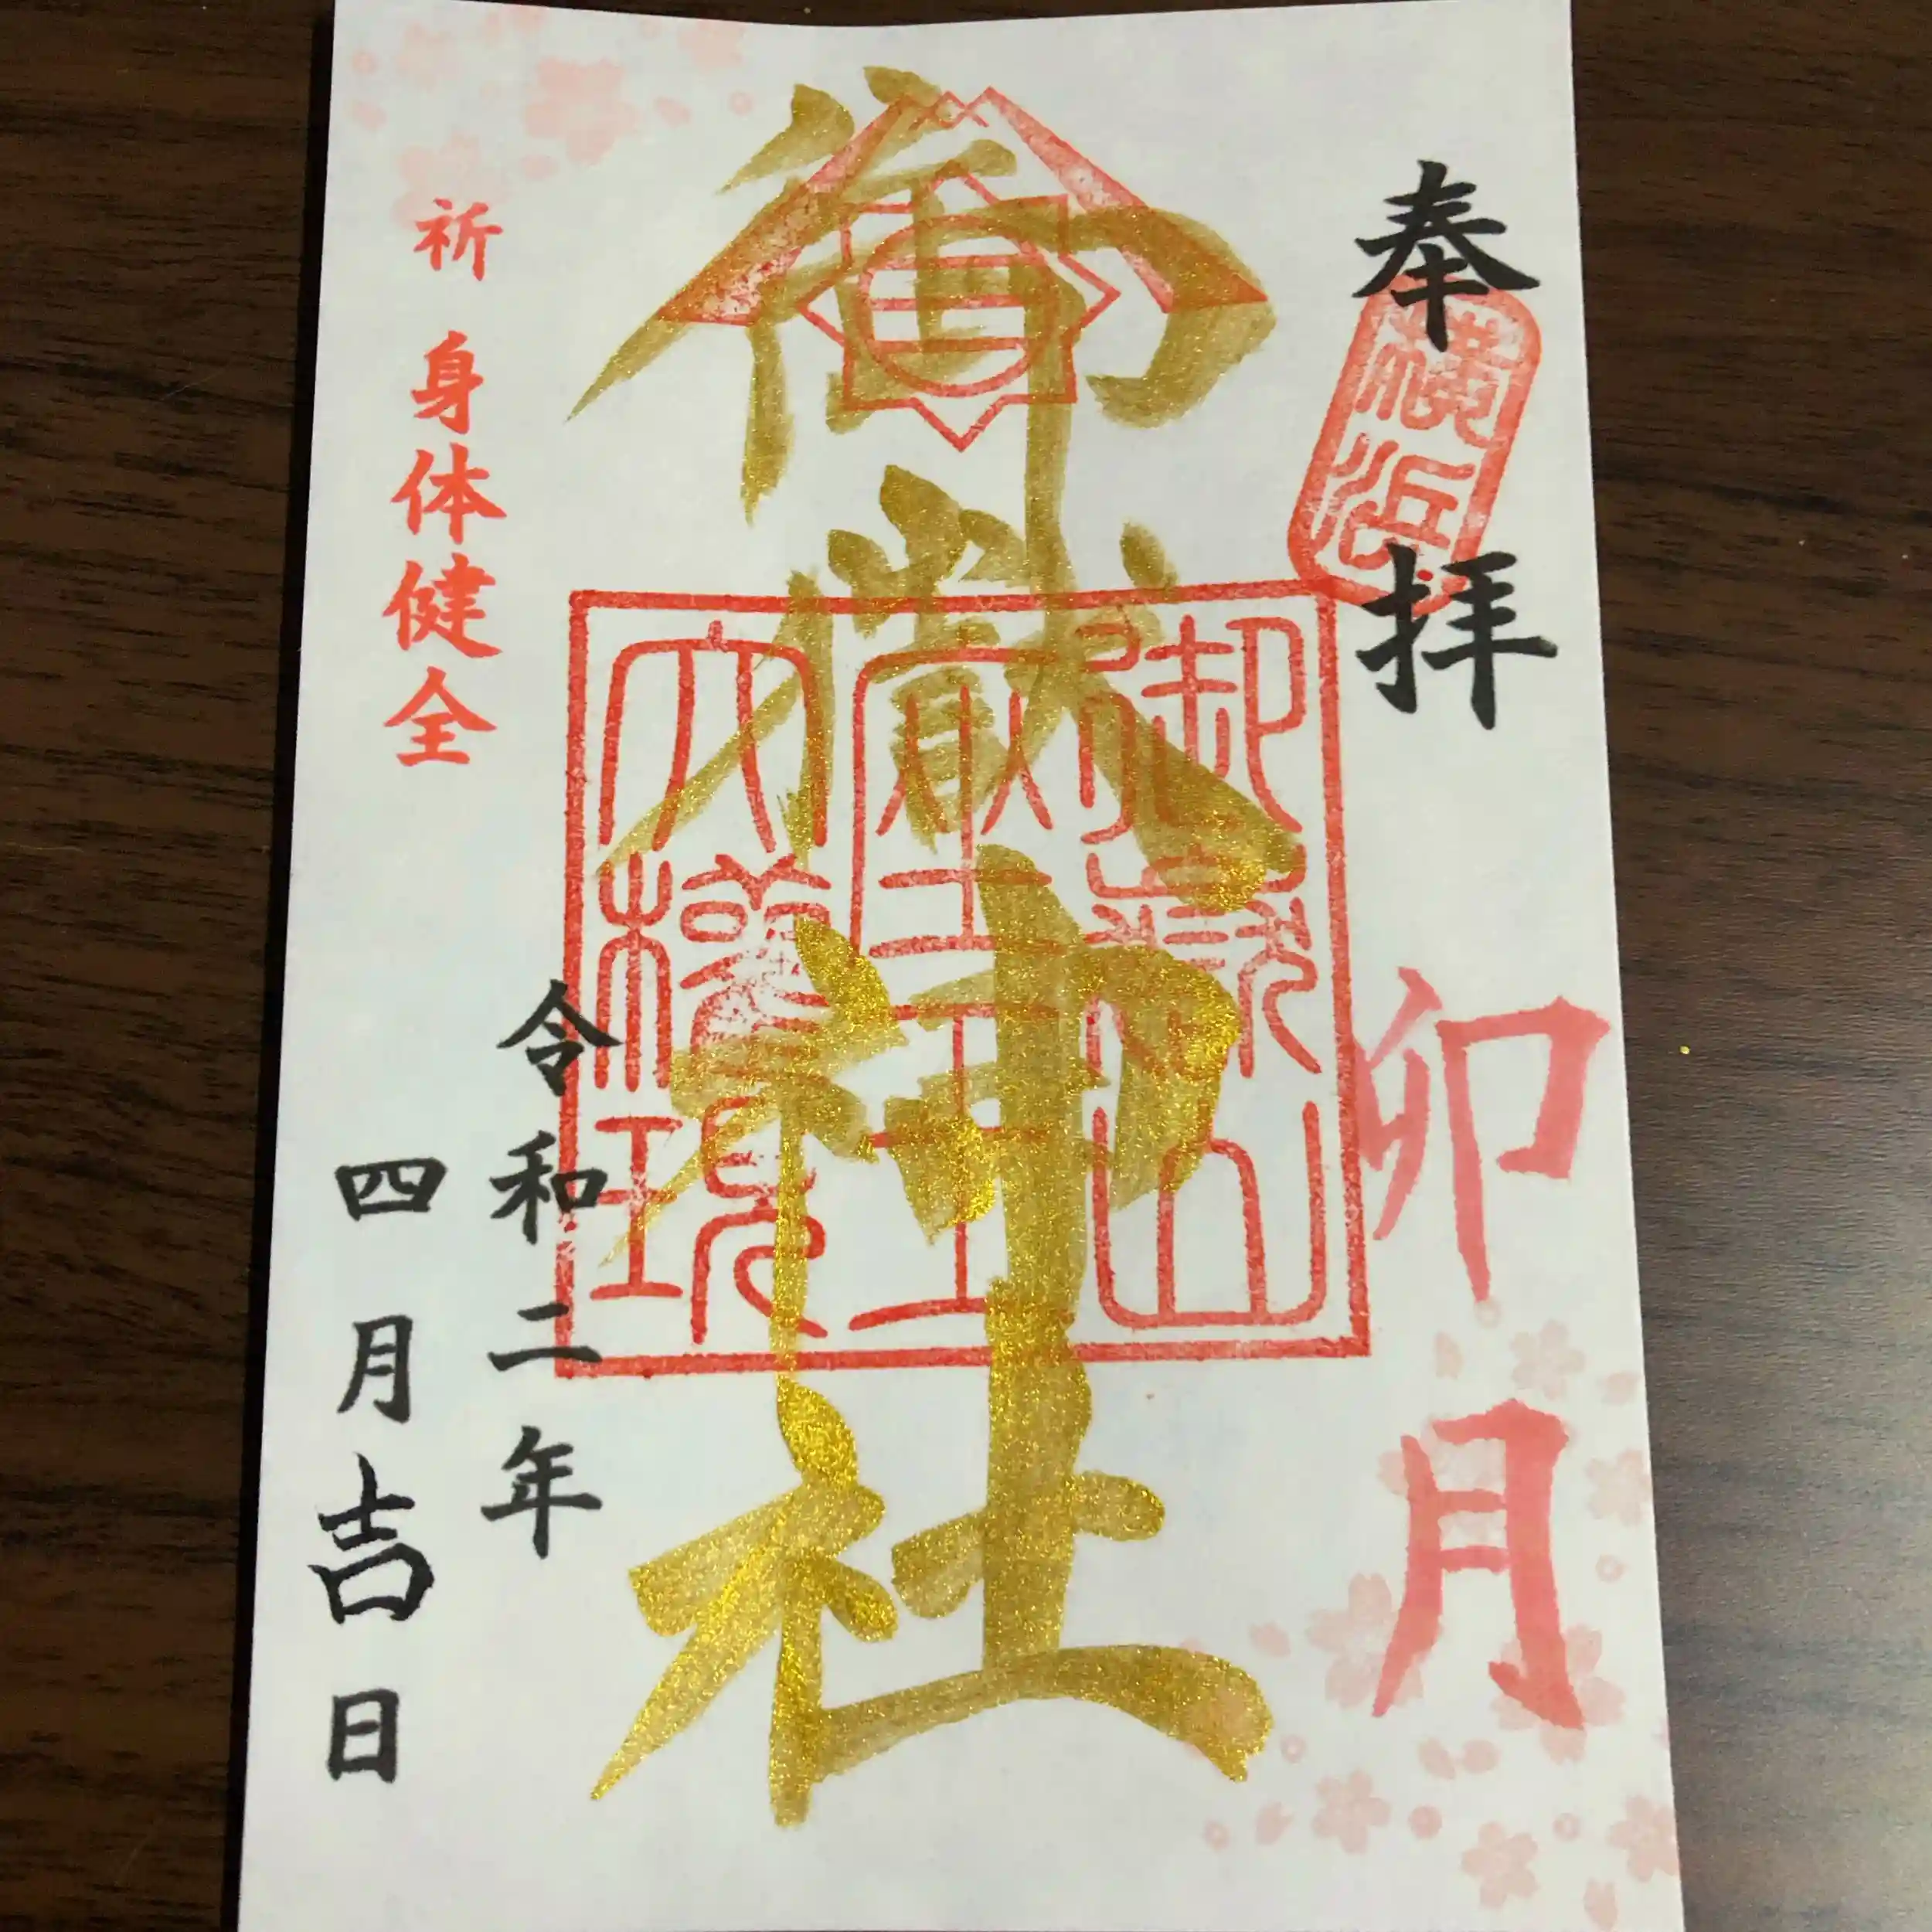 奉拝
横浜
卯月
御嶽神社
御嶽山
座王
大権現
令和二年
四月吉日
祈 身体健全